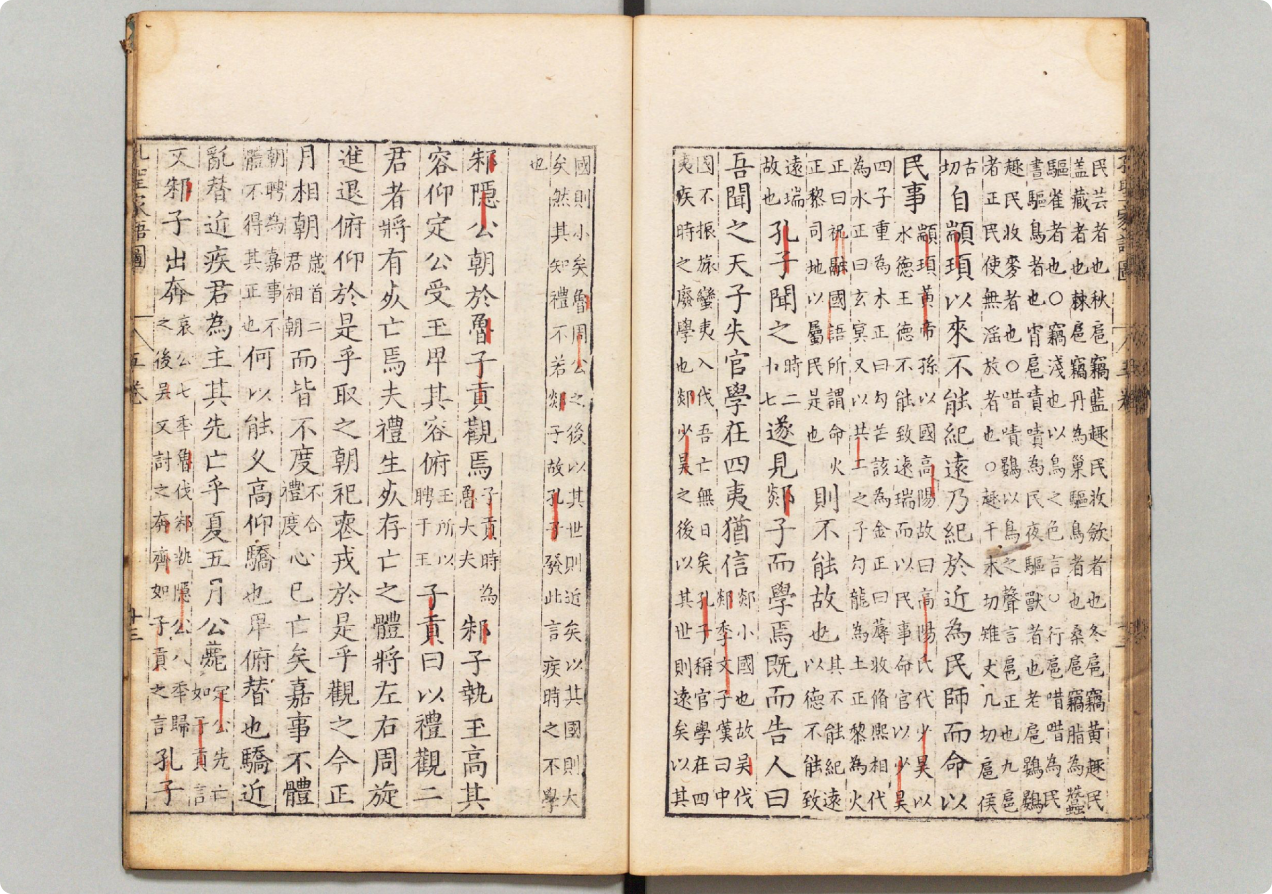 民芸者也秋扈竊藍趣民收斂者也冬扈竊黃趣民
蓋藏者也棘扈竊丹為巢驅鳥者也桑扈竊脂為蠶
驅雀者也○竊淺也以鳥之色言○行扈唶唶為民
晝驅鳥者也宵扈嘖嘖為民夜驅獸者也老扈鷃鷃
趣民收麥者也○唶嘖鷃以鳥之聲言扈正也九扈
者正民使無淫放者也○趣千水切雉丈几切扈侯
古切自顓頊以來不能紀遠乃紀於近為民師而命以
民事顓頊黃帝孫以國高陽故曰高陽氏代少昊以
水德王德不能致遠瑞而以民事命官以少昊
四子重為木正曰勾芒該為金正曰蓐收脩熙相代
為水正曰玄冥又以共工之子勾龍為土正黎為火
正曰祝融國語所謂命火正黎司地以屬民是也則不能故也其不能紀遠以德不能致
遠瑞故也孔子聞之時二十七遂見郯子而學焉既而告人曰
吾聞之天子失官學在四夷猶信郯小國也故吳伐郯季文子嘆曰中
國不振旅蠻夷入伐吾亡無日矣孔子稱官學在四
夷疾時之廢學也郯少昊之後以其世則遠矣以其
國則小矣魯周公之後以其世則近矣以其國則大
矣然其知禮不若郯子故孔子發此言疾時之不學
也
邾隱公朝於魯子貢觀焉子貢時為魯大夫邾子執玉高其
容仰定公受玉卑其容俯玉所以聘于王子貢曰以禮觀二
君者將有死亡焉夫禮生死存亡之體將左右周旋
進退俯仰於是乎取之朝祀喪戎於是乎觀之今正
月相朝歲首二君相朝而皆不度不合禮度心已亡矣嘉事不體
朝聘為嘉事不體不得其正也何以能久高仰驕也卑俯替也驕近
亂替近疾君為主其先亡乎夏五月公薨定公先亡如子貢言
又邾子出奔哀公七年魯伐邾執隱公八年歸之後吳又討之奔齊如子貢之言孔子
孔聖家語圖
五卷
十三